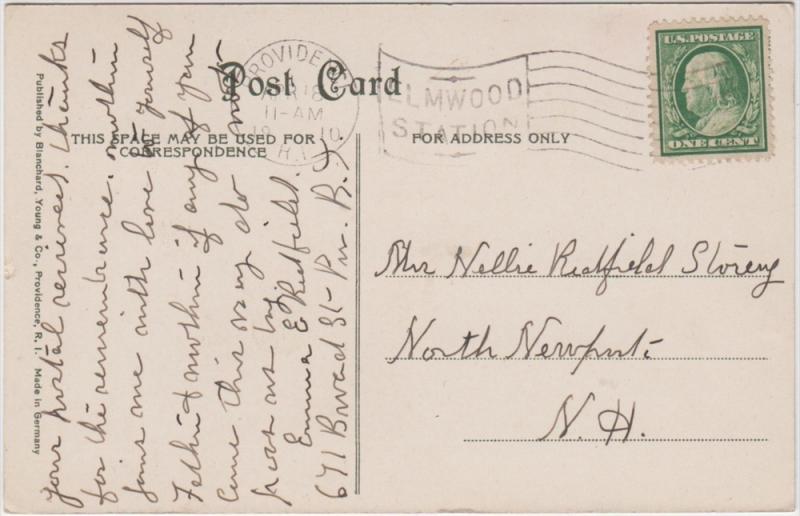 Post Card
THIS SPACE MAY BE USED FOR
CORRESPONDENCE
FOR ADDRESS ONLY
PROVIDE
APR 18
11-AM
19 10
R.I.
ELMWOOD
STATION
U.S. POSTAGE
ONE CENT
Your postal received. thanks
for the remembrance. mother
joins me with love to yourself
Father & mother if any of you
come this way do not
pass us by.
Emma E Redfield.
671 Broad St- Prv. R.I.
Mrs Nellie Redfield Storey
North Newport
N. H.
Published by Blanchard, Young & Co., Providence, R. I. Made in Germany